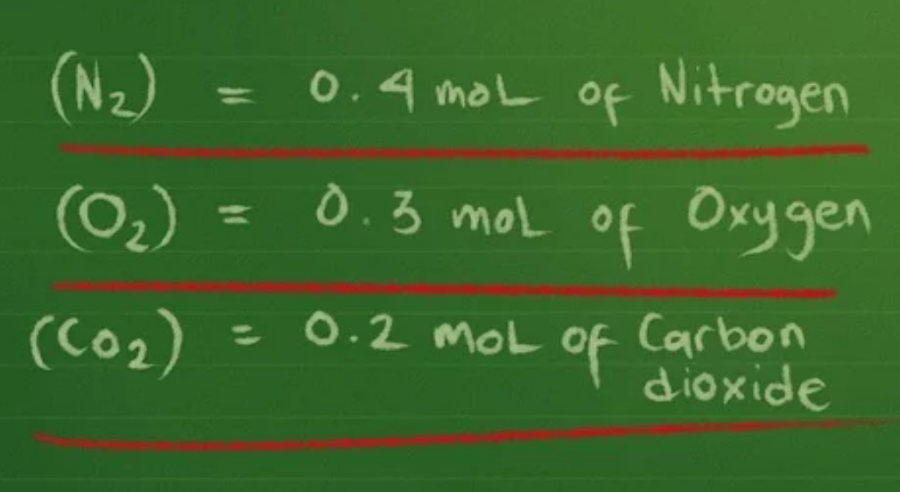 (N₂) = 0.4 mol of Nitrogen
(O₂) = 0.3 mol of Oxygen
(CO₂) = 0.2 mol of Carbon
dioxide